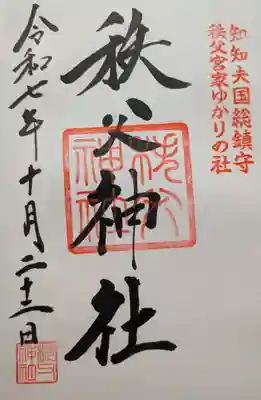 知知夫国総鎮守
秩父宮家ゆかりの社
秩父神社
令和七年十月二十三日
秩父神社